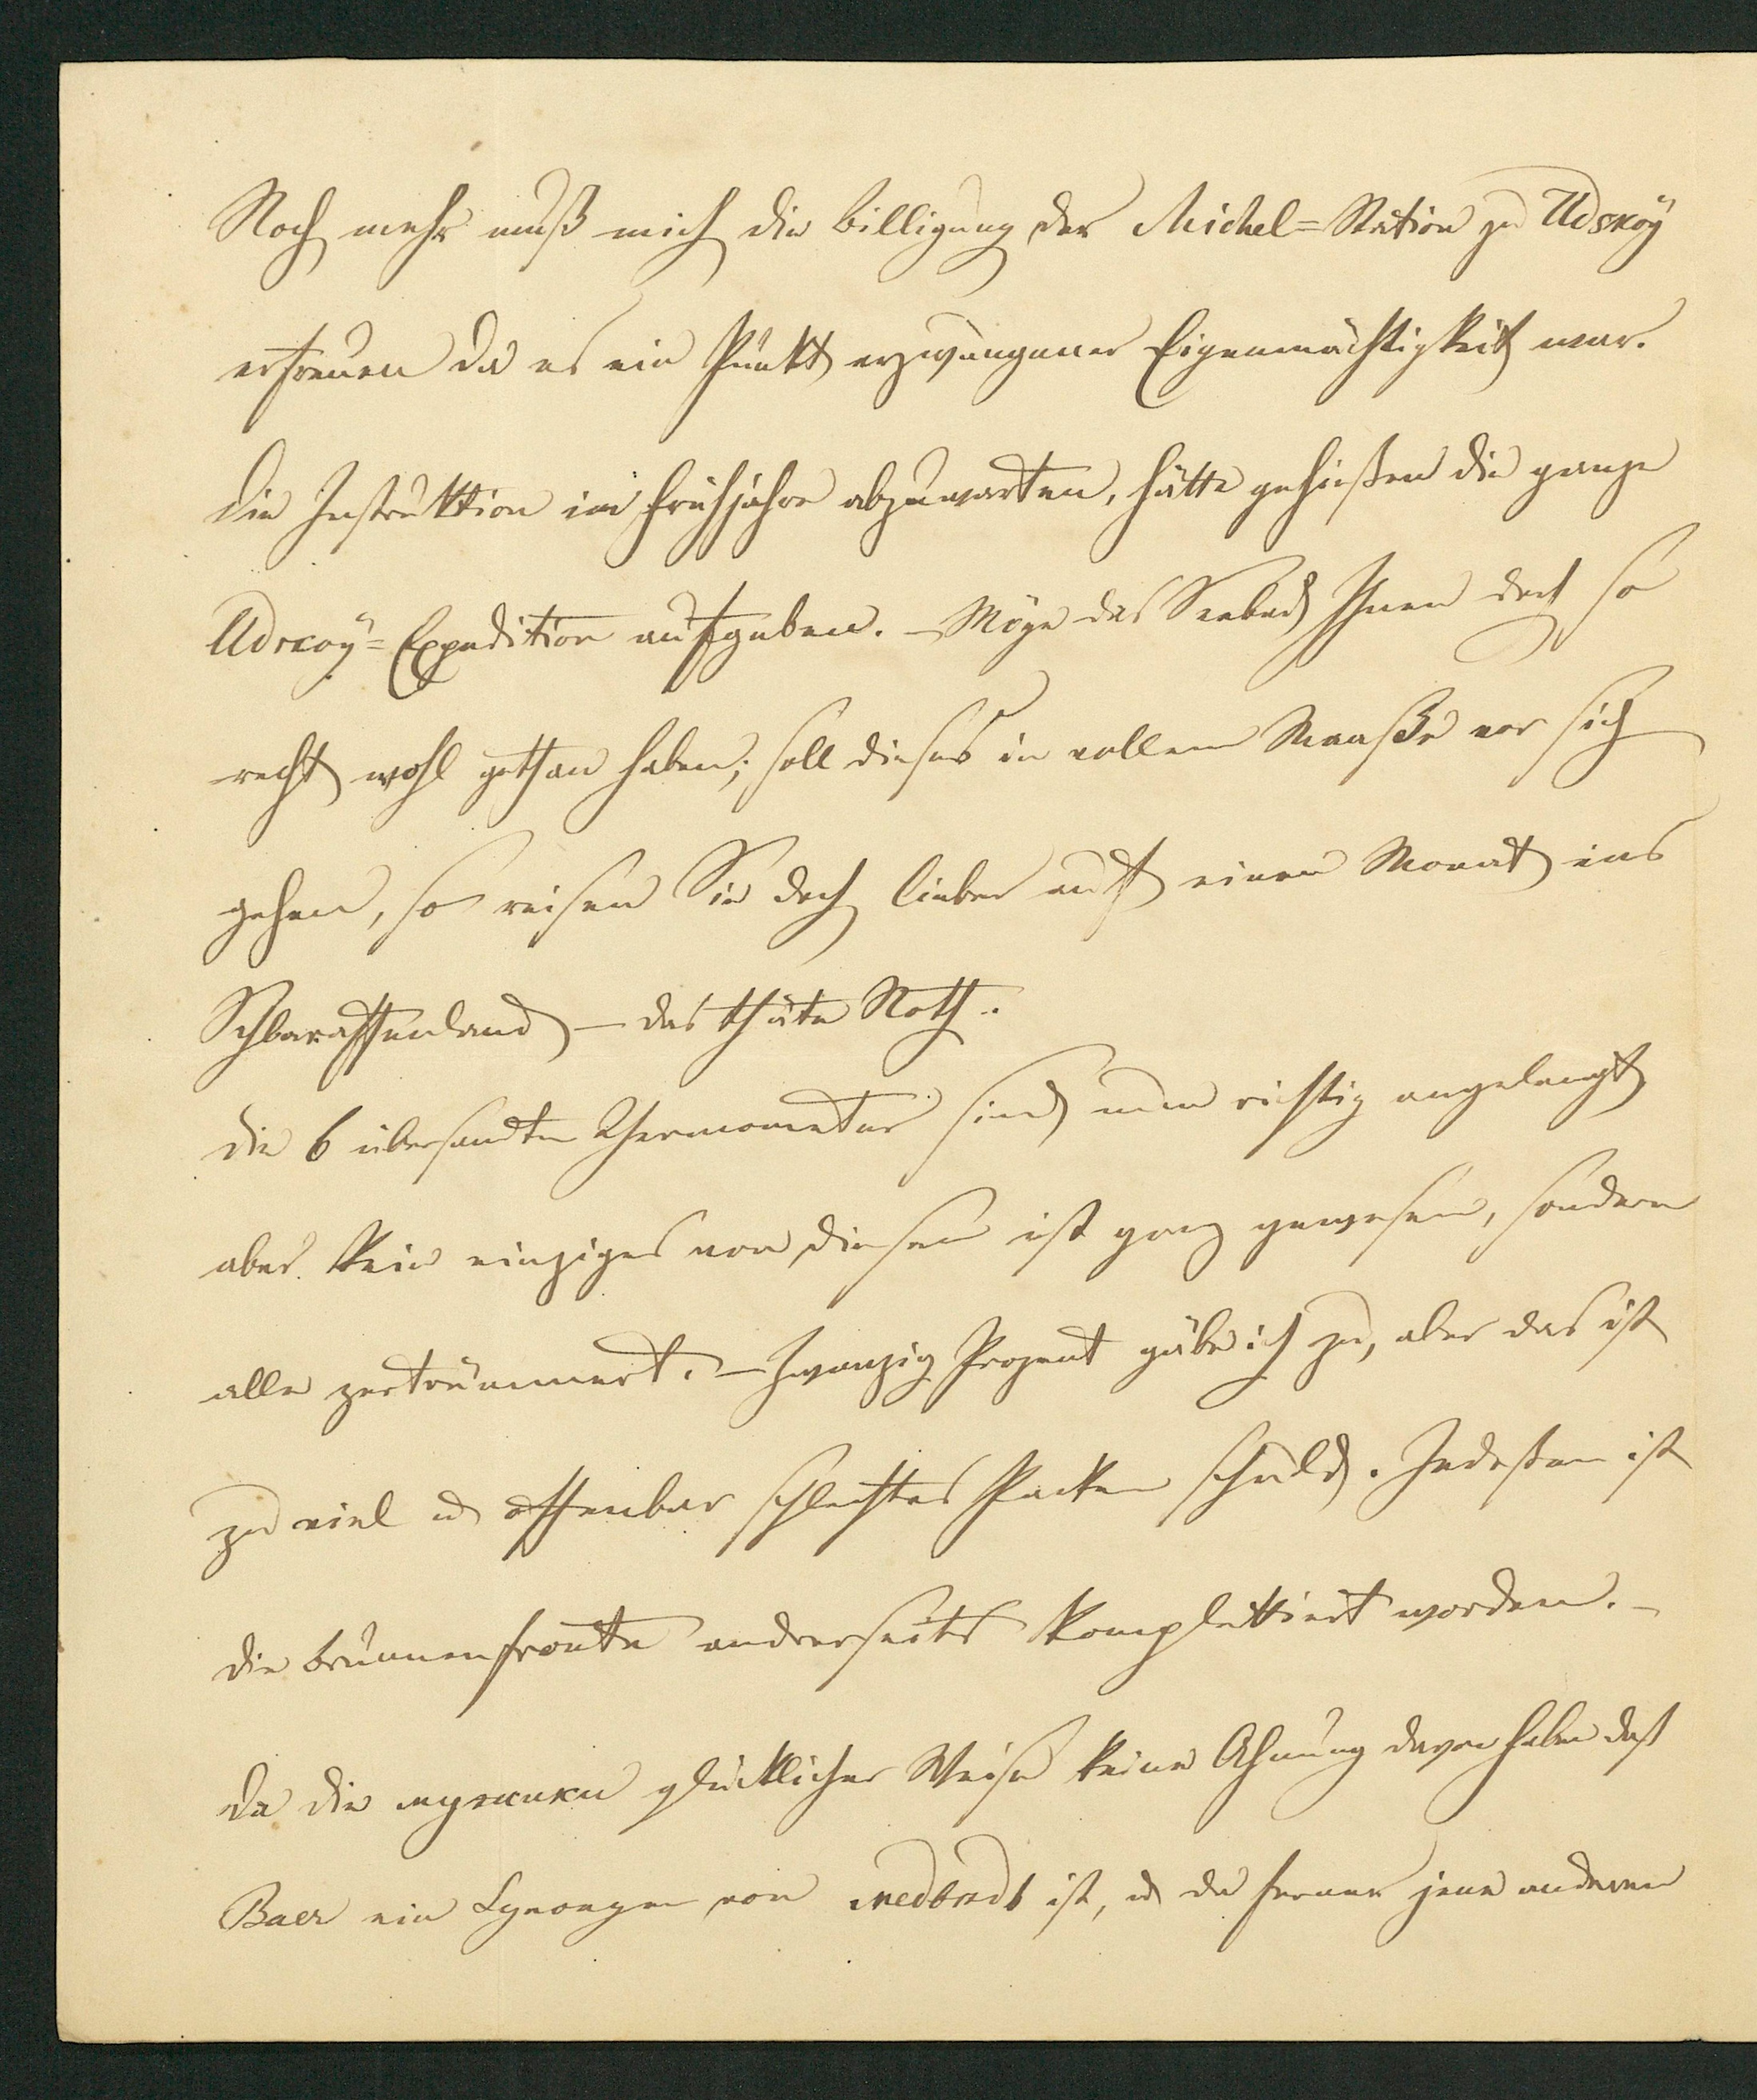 Noch mehr muß mich die Billigung der Michel=Station zu Udskoÿ
erfreuen da es ein Punkt erzwungener Eigenmächtigkeit war.
Die Instruktion im Frühjahre abzuwarten, hätte geheißen die ganze
Udscoÿ=Expedition aufgeben. – Möge das Seebad Ihnen doch so
recht wohl gethan haben; soll dieses in vollem Maaße vor sich
gehen, so reisen Sie doch lieber auf einen Monat ins
Schlaraffenland – das thäte Noth.
Die 6 übersandten Thermometer sind nun richtig angelangt
aber kein einziges von diesen ist ganz gewesen, sondern
alle zertrümmert. – Zwanzig Prozent gäbe ich zu, aber das ist
zu viel u offenbar schlechtes Packen schuld. Indeßen ist
die Brunnenfronte andrerseits komplettiert worden. –
Da die мужики glücklicher Weise keine Ahnung davon haben daß
Baer ein Synonym von медвѣдь ist, u da ferner jene anderen